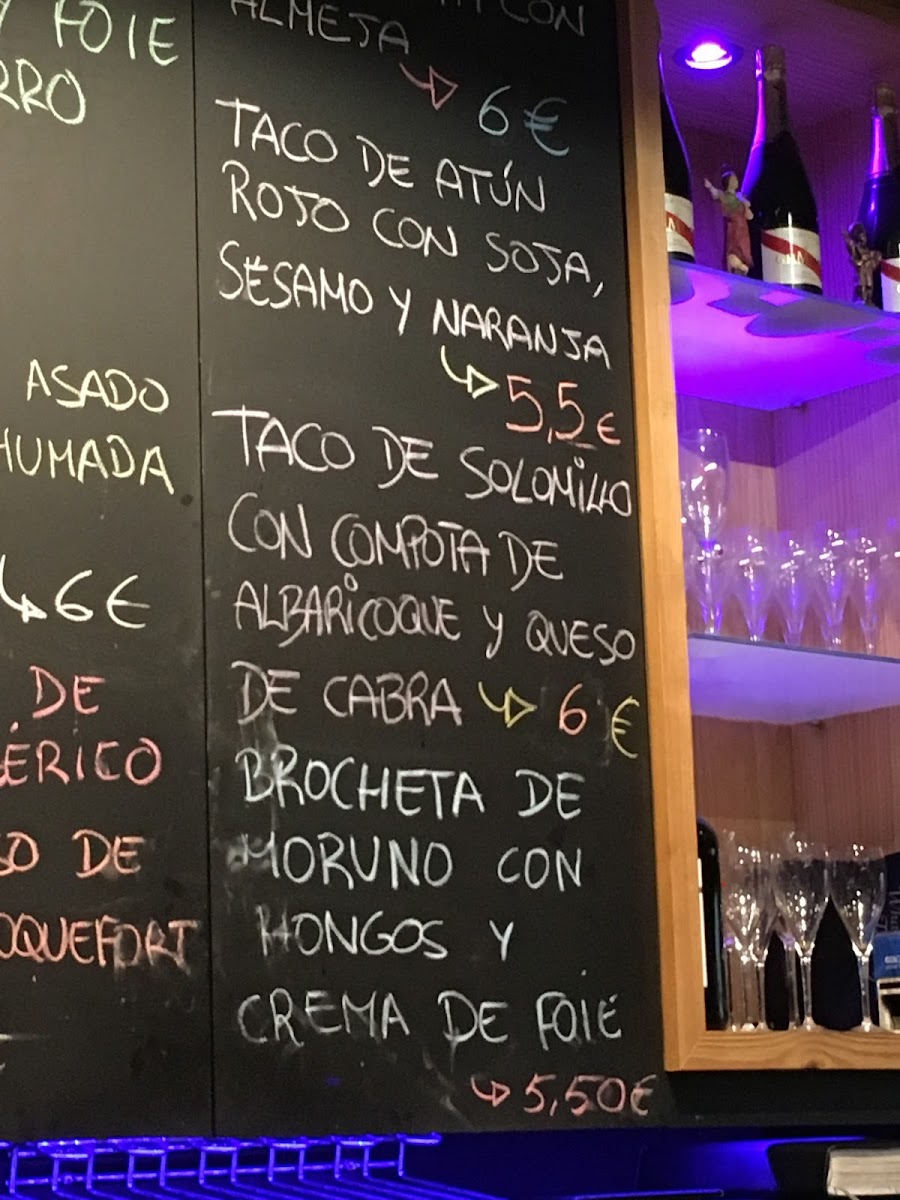 FOIE
ASADO
6€
DE
DE
ALMEJA
6€
TACO DE ATÚN
ROJO CON SOJA,
SÉSAMO Y NARANJA
5,5€
TACO DE SOLOMILLO
CON COMPOTA DE
ALBARICOQUE Y QUESO
DE CABRA 6 €
BROCHETA DE
MORUNO CON
HONGOS Y
CREMA DE FOIE
5,50€